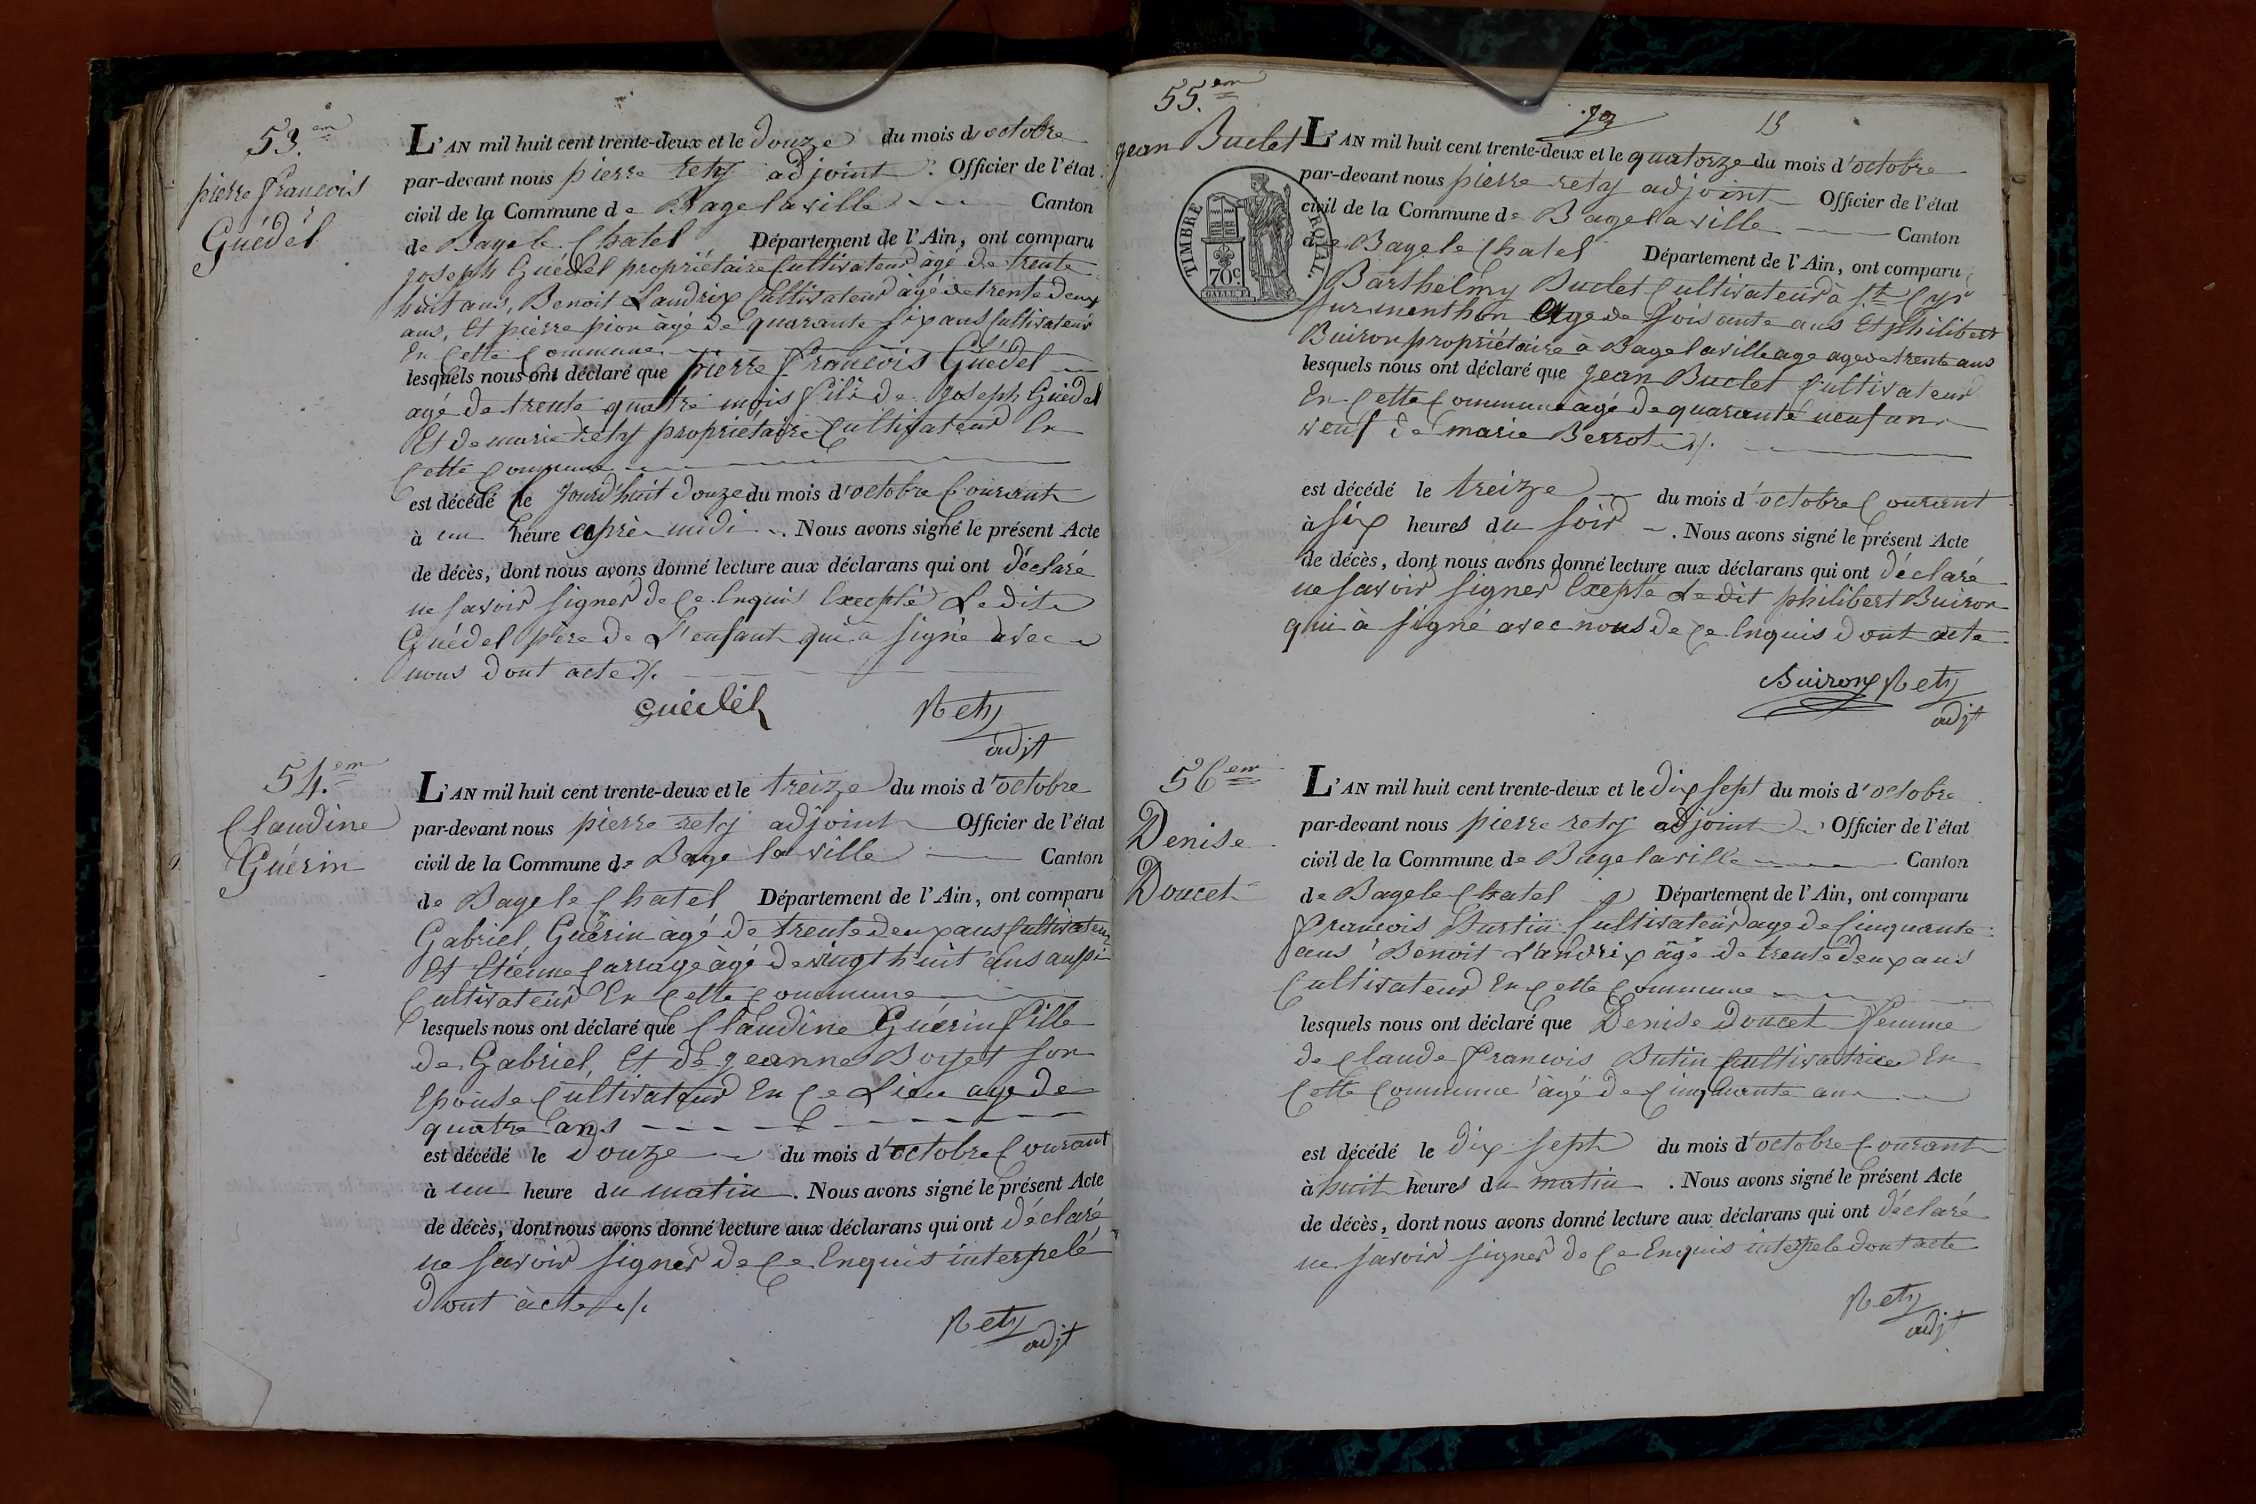 53.em
pierre françois
Guédel
L'AN mil huit cent trente-deux et le douze du mois d'octobre
par-devant nous pierre rety adjoint Officier de l'état
civil de la Commune de Bagelaville Canton
de Bagele Chatel Département de l'Ain, ont comparu
joseph Guédel propriétaire Cultivateur agé de trente
huit ans, Benoit Landrix Cultivateur agé de trente deux
ans, Et pierre pion àgé de quarante six ans Cultivateur
En Cette Commune
lesquels nous ont déclaré que pierre françois Guédel
agé de trente quatre mois fils de joseph Guédel
Et de marie rety propriétaire Cultivateur En
Cette Commune
est décédé le jourd'huit douze du mois d'octobre Courant
à un heure après midi. Nous avons signé le présent Acte
de décès, dont nous avons donné lecture aux déclarans qui ont déclaré
ne savoir signer de Ce Enquis Excepté Ledit
Guédel père de L'enfant qui à signé avec
nous dont acte ./.
Guédel Rety
adjt
54.em
Claudine
Guérin
L'AN mil huit cent trente-deux et le treize du mois d'octobre
par-devant nous pierre rety adjoint Officier de l'état
civil de la Commune de Bage la ville Canton
de Bagele Chatel Département de l'Ain, ont comparu
Gabriel Guérin àgé de trente deux ans Cultivateur
Et Etienne Carrage àgé de vingt huit ans aussi
Cultivateur En Cette Commune
lesquels nous ont déclaré que Claudine Guérin fille
de Gabriel, Et de jeanne Boyet son
Epouse Cultivateur En Ce Lieu agé de
quatre ans
est décédé le douze du mois d'octobre Courant
à un heure du matin. Nous avons signé le présent Acte
de décès, dont nous avons donné lecture aux déclarans qui ont déclaré
ne savoir signer de Ce Enquis interpelé
dont àcte ./.
Rety
adjt
55.em
jean Buclet
13
TIMBRE ROYAL.
70c.
L'AN mil huit cent trente-deux et le quatorze du mois d'octobre
par-devant nous pierre rety adjoint Officier de l'état
civil de la Commune de Bagelaville Canton
de Bagele Chatel Département de l'Ain, ont comparu
Barthélmy Buclet Cultivateur à St Cyr
sur menthon agé de soisante ans Et philibert
Buiron propriétaire à Bagelaville age agé de trente ans
lesquels nous ont déclaré que jean Buclet Cultivateur
En Cette Commune àgé de quarante neuf ans
veuf de marie Berrot ./.
est décédé le treize du mois d'octobre Courant
à six heures du soir. Nous avons signé le présent Acte
de décès, dont nous avons donné lecture aux déclarans qui ont déclaré
ne savoir signer Exepté Ledit philibert Buiron
qui à signé avec nous de Ce Enquis dont acte
Buiron Rety
adjt
56em
Denise
Doucet
L'AN mil huit cent trente-deux et le dix sept du mois d'octobre
par-devant nous pierre rety adjoint Officier de l'état
civil de la Commune de Bagelaville Canton
de Bagele Chatel Département de l'Ain, ont comparu
françois Cultivateur agé de Cinquante
ans Benoit Landrix âgé de trente deux ans
Cultivateur En Cette Commune
lesquels nous ont déclaré que Denise Doucet femme
de Claude françois Butin Cultivatrice En
Cette Commune àgé de Cinquante ans
est décédé le dix sept du mois d'octobre Courant
à huit heures du matin. Nous avons signé le présent Acte
de décès, dont nous avons donné lecture aux déclarans qui ont déclaré
ne savoir signer de Ce Enquis interpele dont acte
Rety
adjt